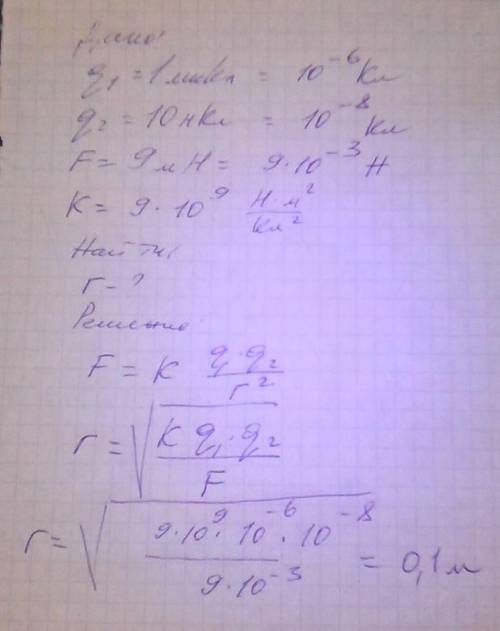 Дано:
q₁ = 1 мкКл = 10⁻⁶ Кл
q₂ = 10 нКл = 10⁻⁸ Кл
F = 9 мН = 9·10⁻³ Н
K = 9·10⁹ Н·м²/Кл²
Найти:
r - ?
Решение
F = K q₁·q₂/r²
r = √(K q₁·q₂/F)
r = √(9·10⁹·10⁻⁶·10⁻⁸/9·10⁻³) = 0,1 м